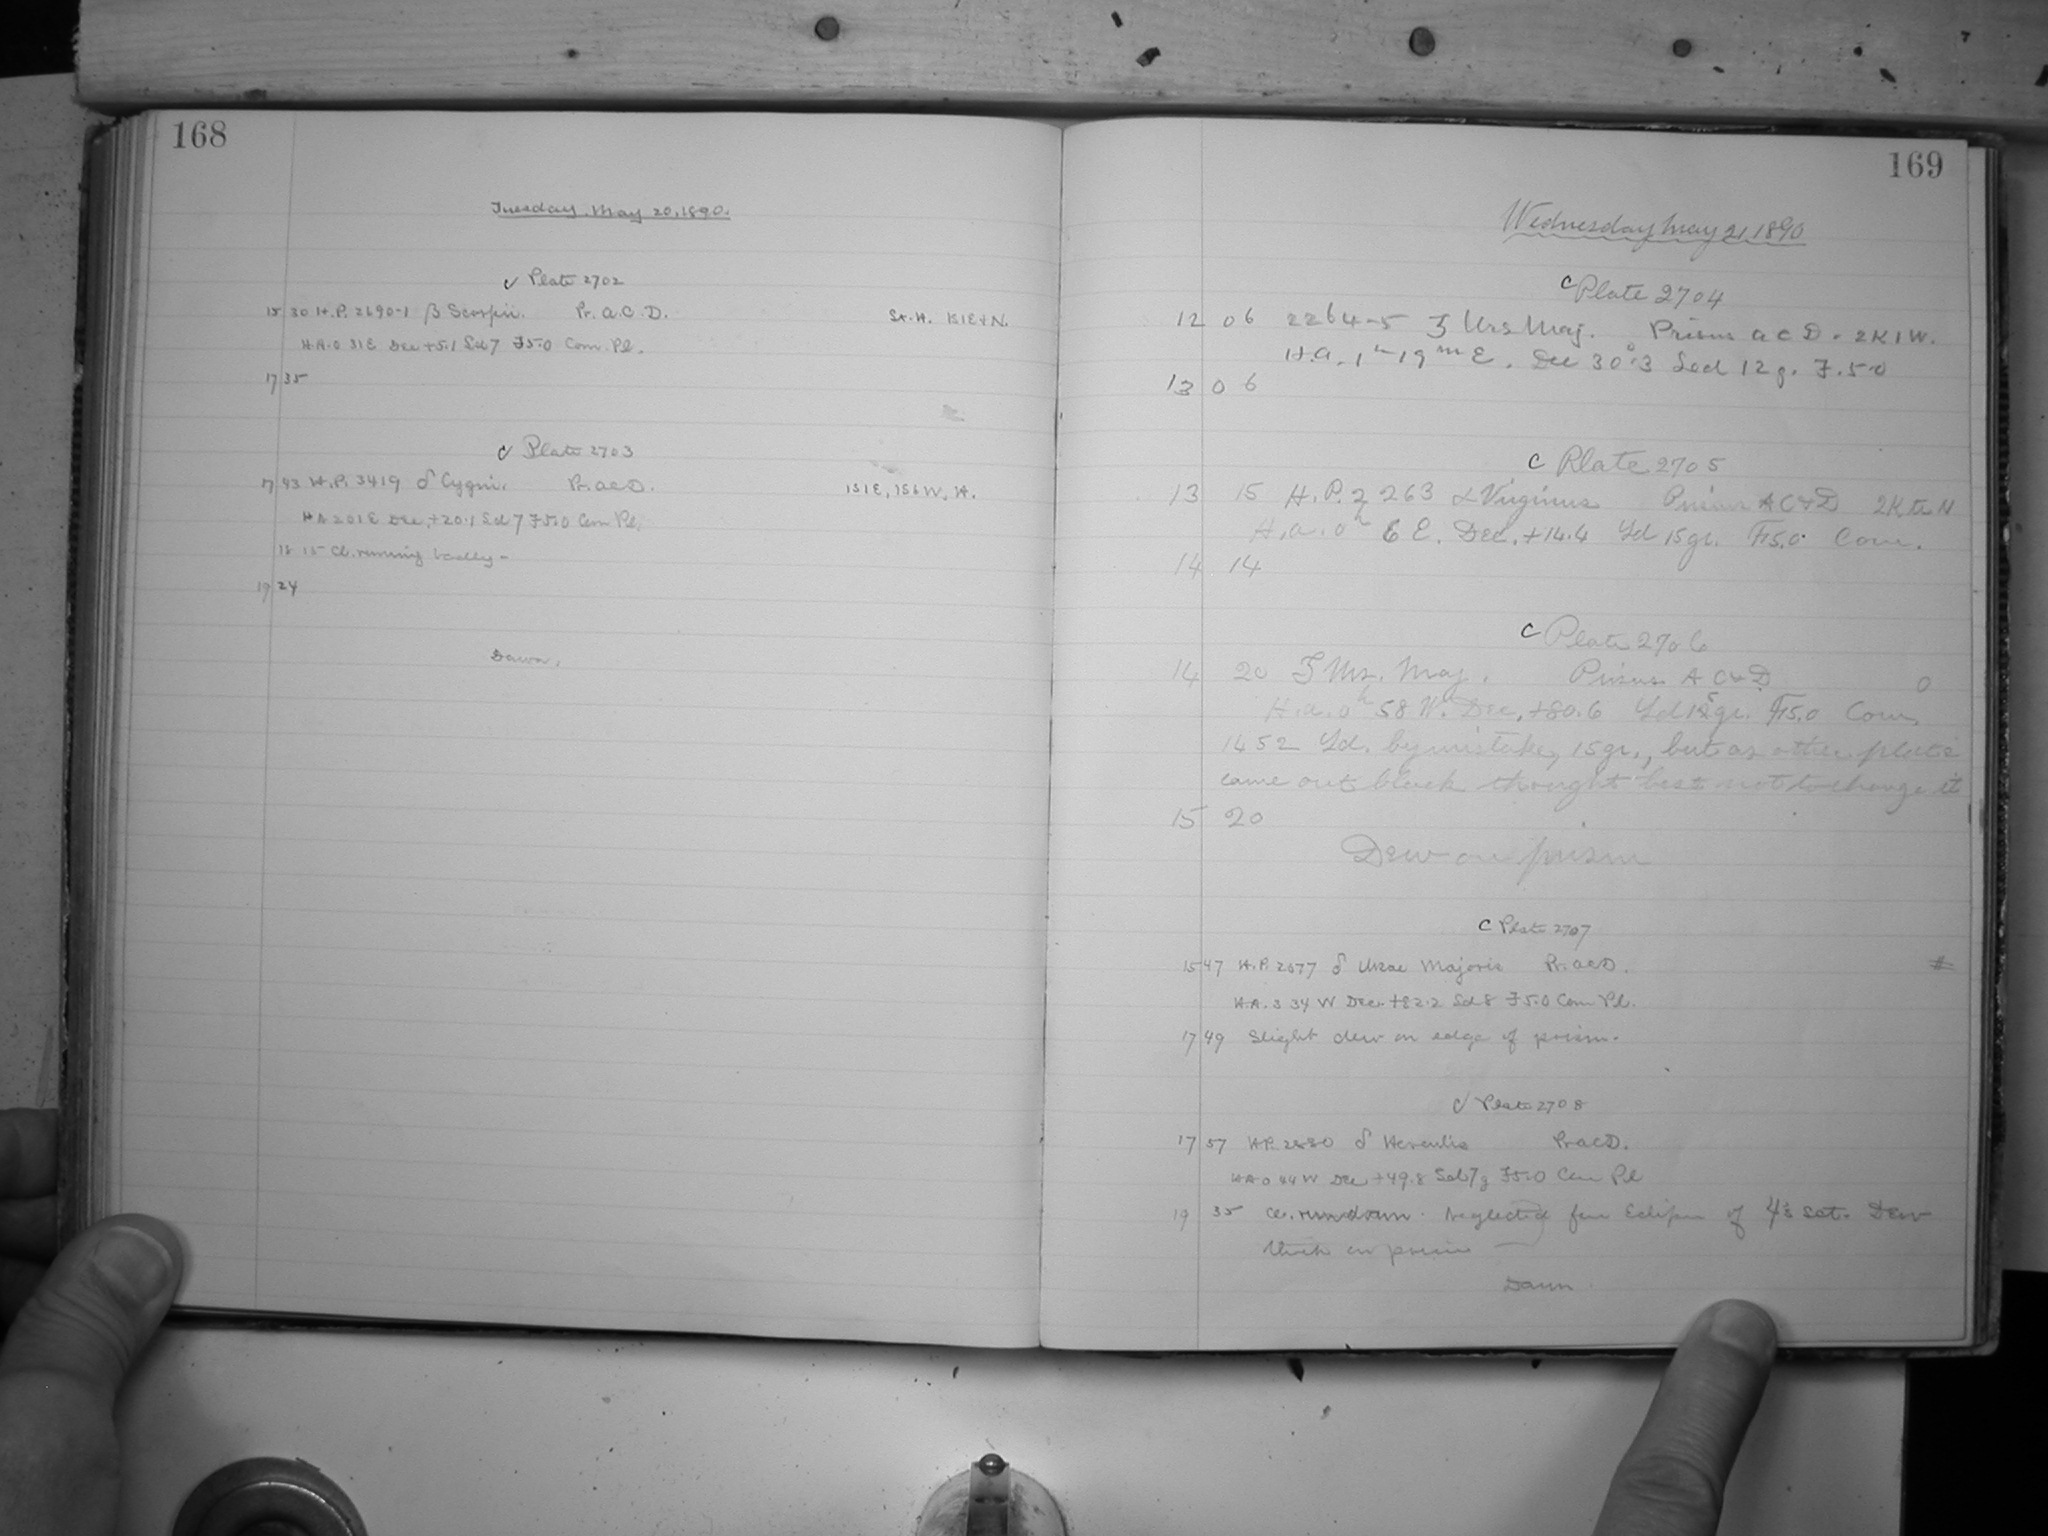 168
Tuesday. May 20, 1890.
c Plate 2702
15 30 H.P. 2690-1 β Scorpii. Pr. a.C.D. St. H. 151E+N.
H.A. 0 31E Dec +5.1 Sd 7 F5.0 Com. Pl.
17 35
c Plate 2703
17 43 H.P. 3419 δ Cygni. Pr. aCD. 151E, 156W, H.
HA 2 01 E Dec. +20.1 Sd 7 F5.0 Com Pl.
18 15 Cl. running badly -
19 24
Dawn.
169
Wednesday May 21, 1890
c Plate 2704
12 06 2264-5 ζ Urs Maj. Prisms a C D. 2K1W.
H.a. 1h 19m E. Dec 30°.3 Sed 12g. F.50
13 06
c Plate 2705
13 15 H.P. 2263 α Virginus Prisms A C & D 2K to N
H.a. 0h 6 E. Dec. +14.4 Sd 15gr. F15.0 Com.
14 14
c Plate 2706
14 20 ζ Urs. Maj. Prisms A C & D 0
H.a. 0h 58 W. Dec. +80.6 Sd 15gr. F15.0 Com.
1452 Sd. by mistake, 15gr., but as other plate
came out black thought best not to change it
15 20
Dew on prism
c Plate 2707
15 47 H.P. 2577 δ Ursae Majoris Pr. aCD. #
H.A. 3 34 W Dec. +82.2 Sd 8 F5.0 Com Pl.
17 49 Slight dew on edge of prism.
c Plate 2708
17 57 HP. 2880 δ Herculis PraCD.
HA 0 44 W Dec +49.8 Sd 7g F5.0 Com Pl
19 35 Cl. run down. Neglected for Eclipse of ♃'s sat. Dew
thick on prism
Dawn